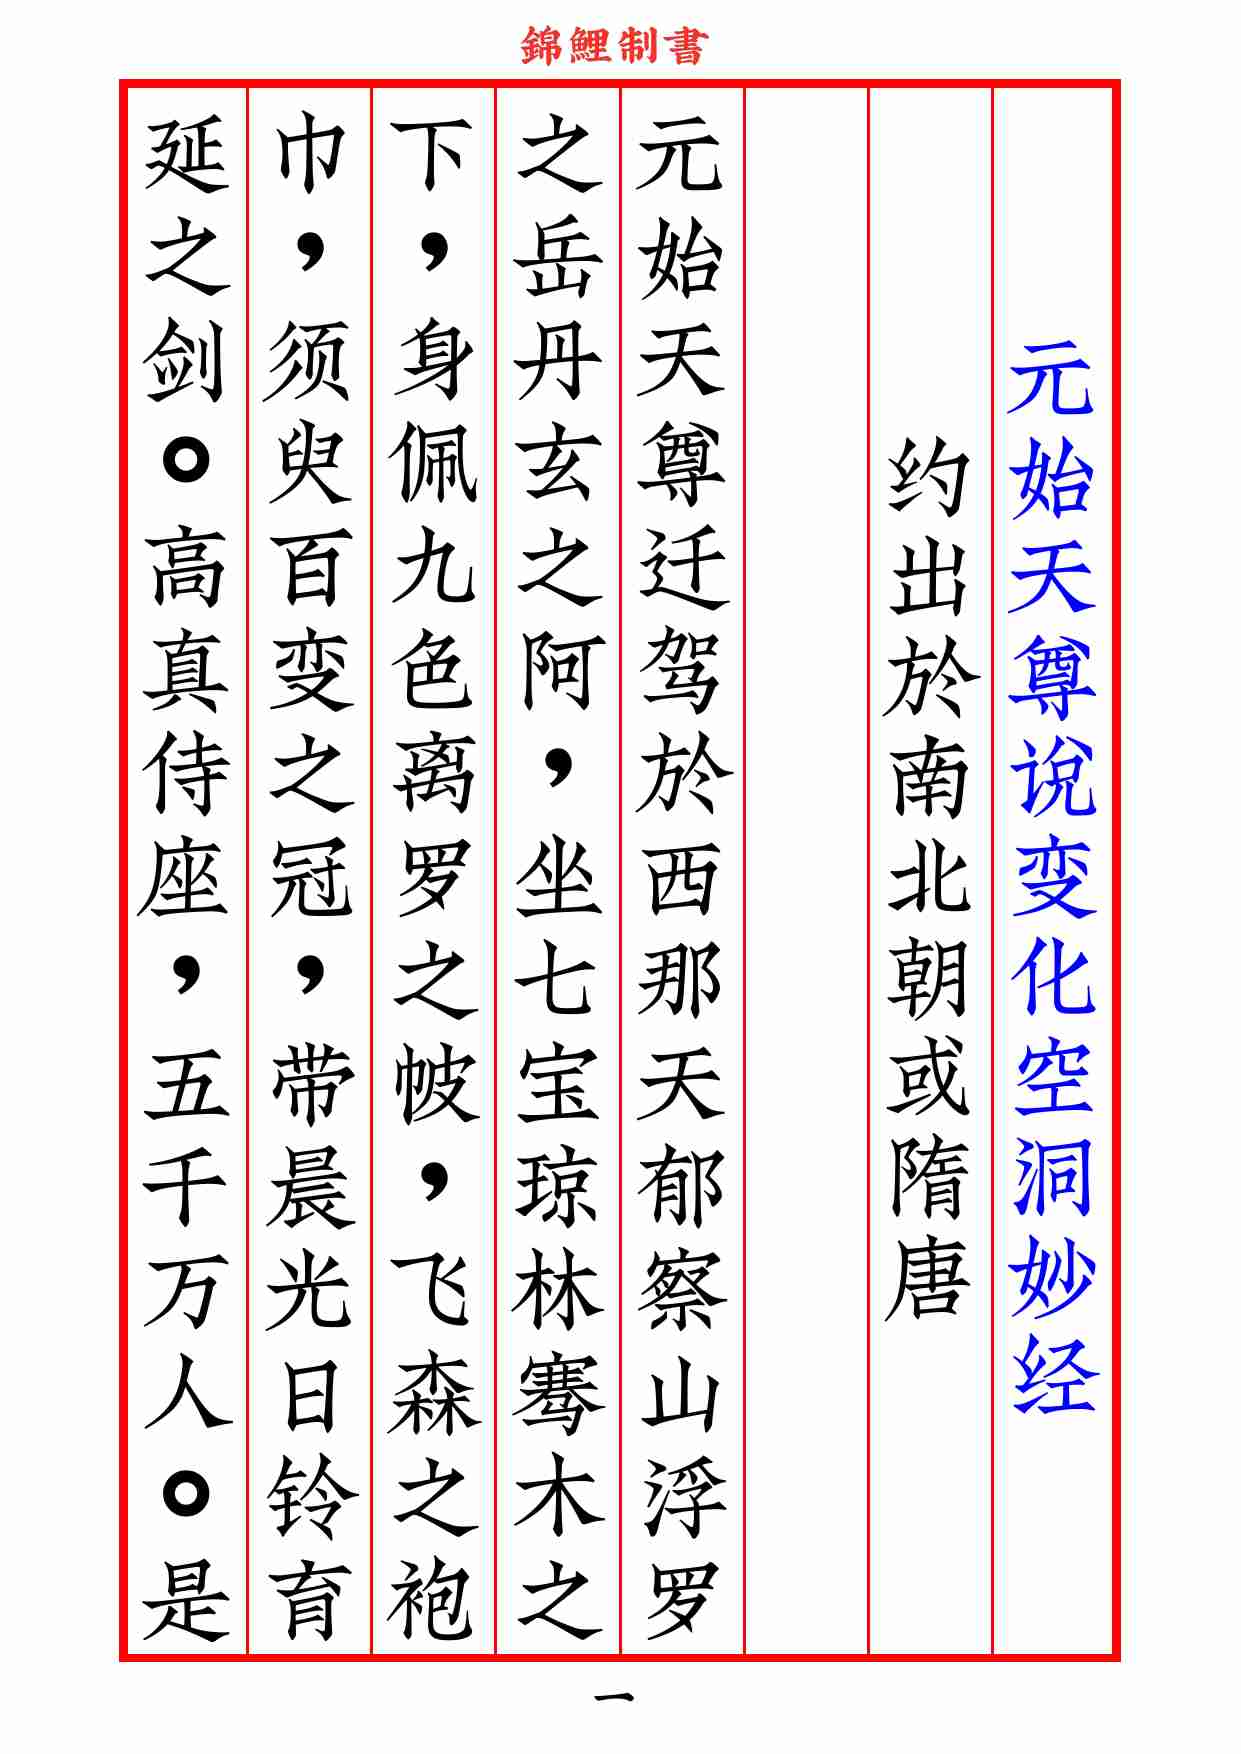 錦鯉制書
元始天尊说变化空洞妙经
约出於南北朝或隋唐
元始天尊迁驾於西那天郁察山浮罗
之岳丹玄之阿，坐七宝琼林骞木之
下，身佩九色离罗之帔，飞森之袍
巾，须臾百变之冠，带晨光日铃育
延之剑。高真侍座，五千万人。是
一